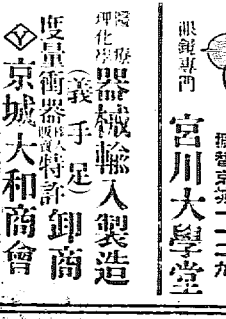 眼鏡專門
宮川大學堂
振替京城一一二九
醫療
理化學
器械輸入製造
(義手足)
度量衡器
特許卸商
Ⓨ京城大和商會